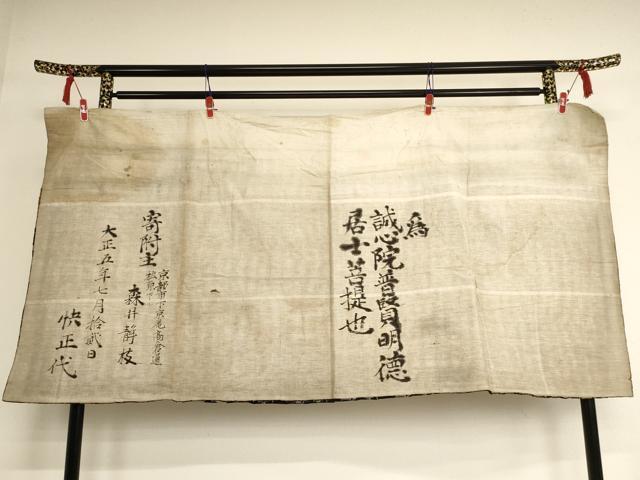 為
誠心院普賢明德
居士菩提也
京都市下京区高倉通
松原下
寄附主
森井静枝
大正五年七月拾貳日
快正代